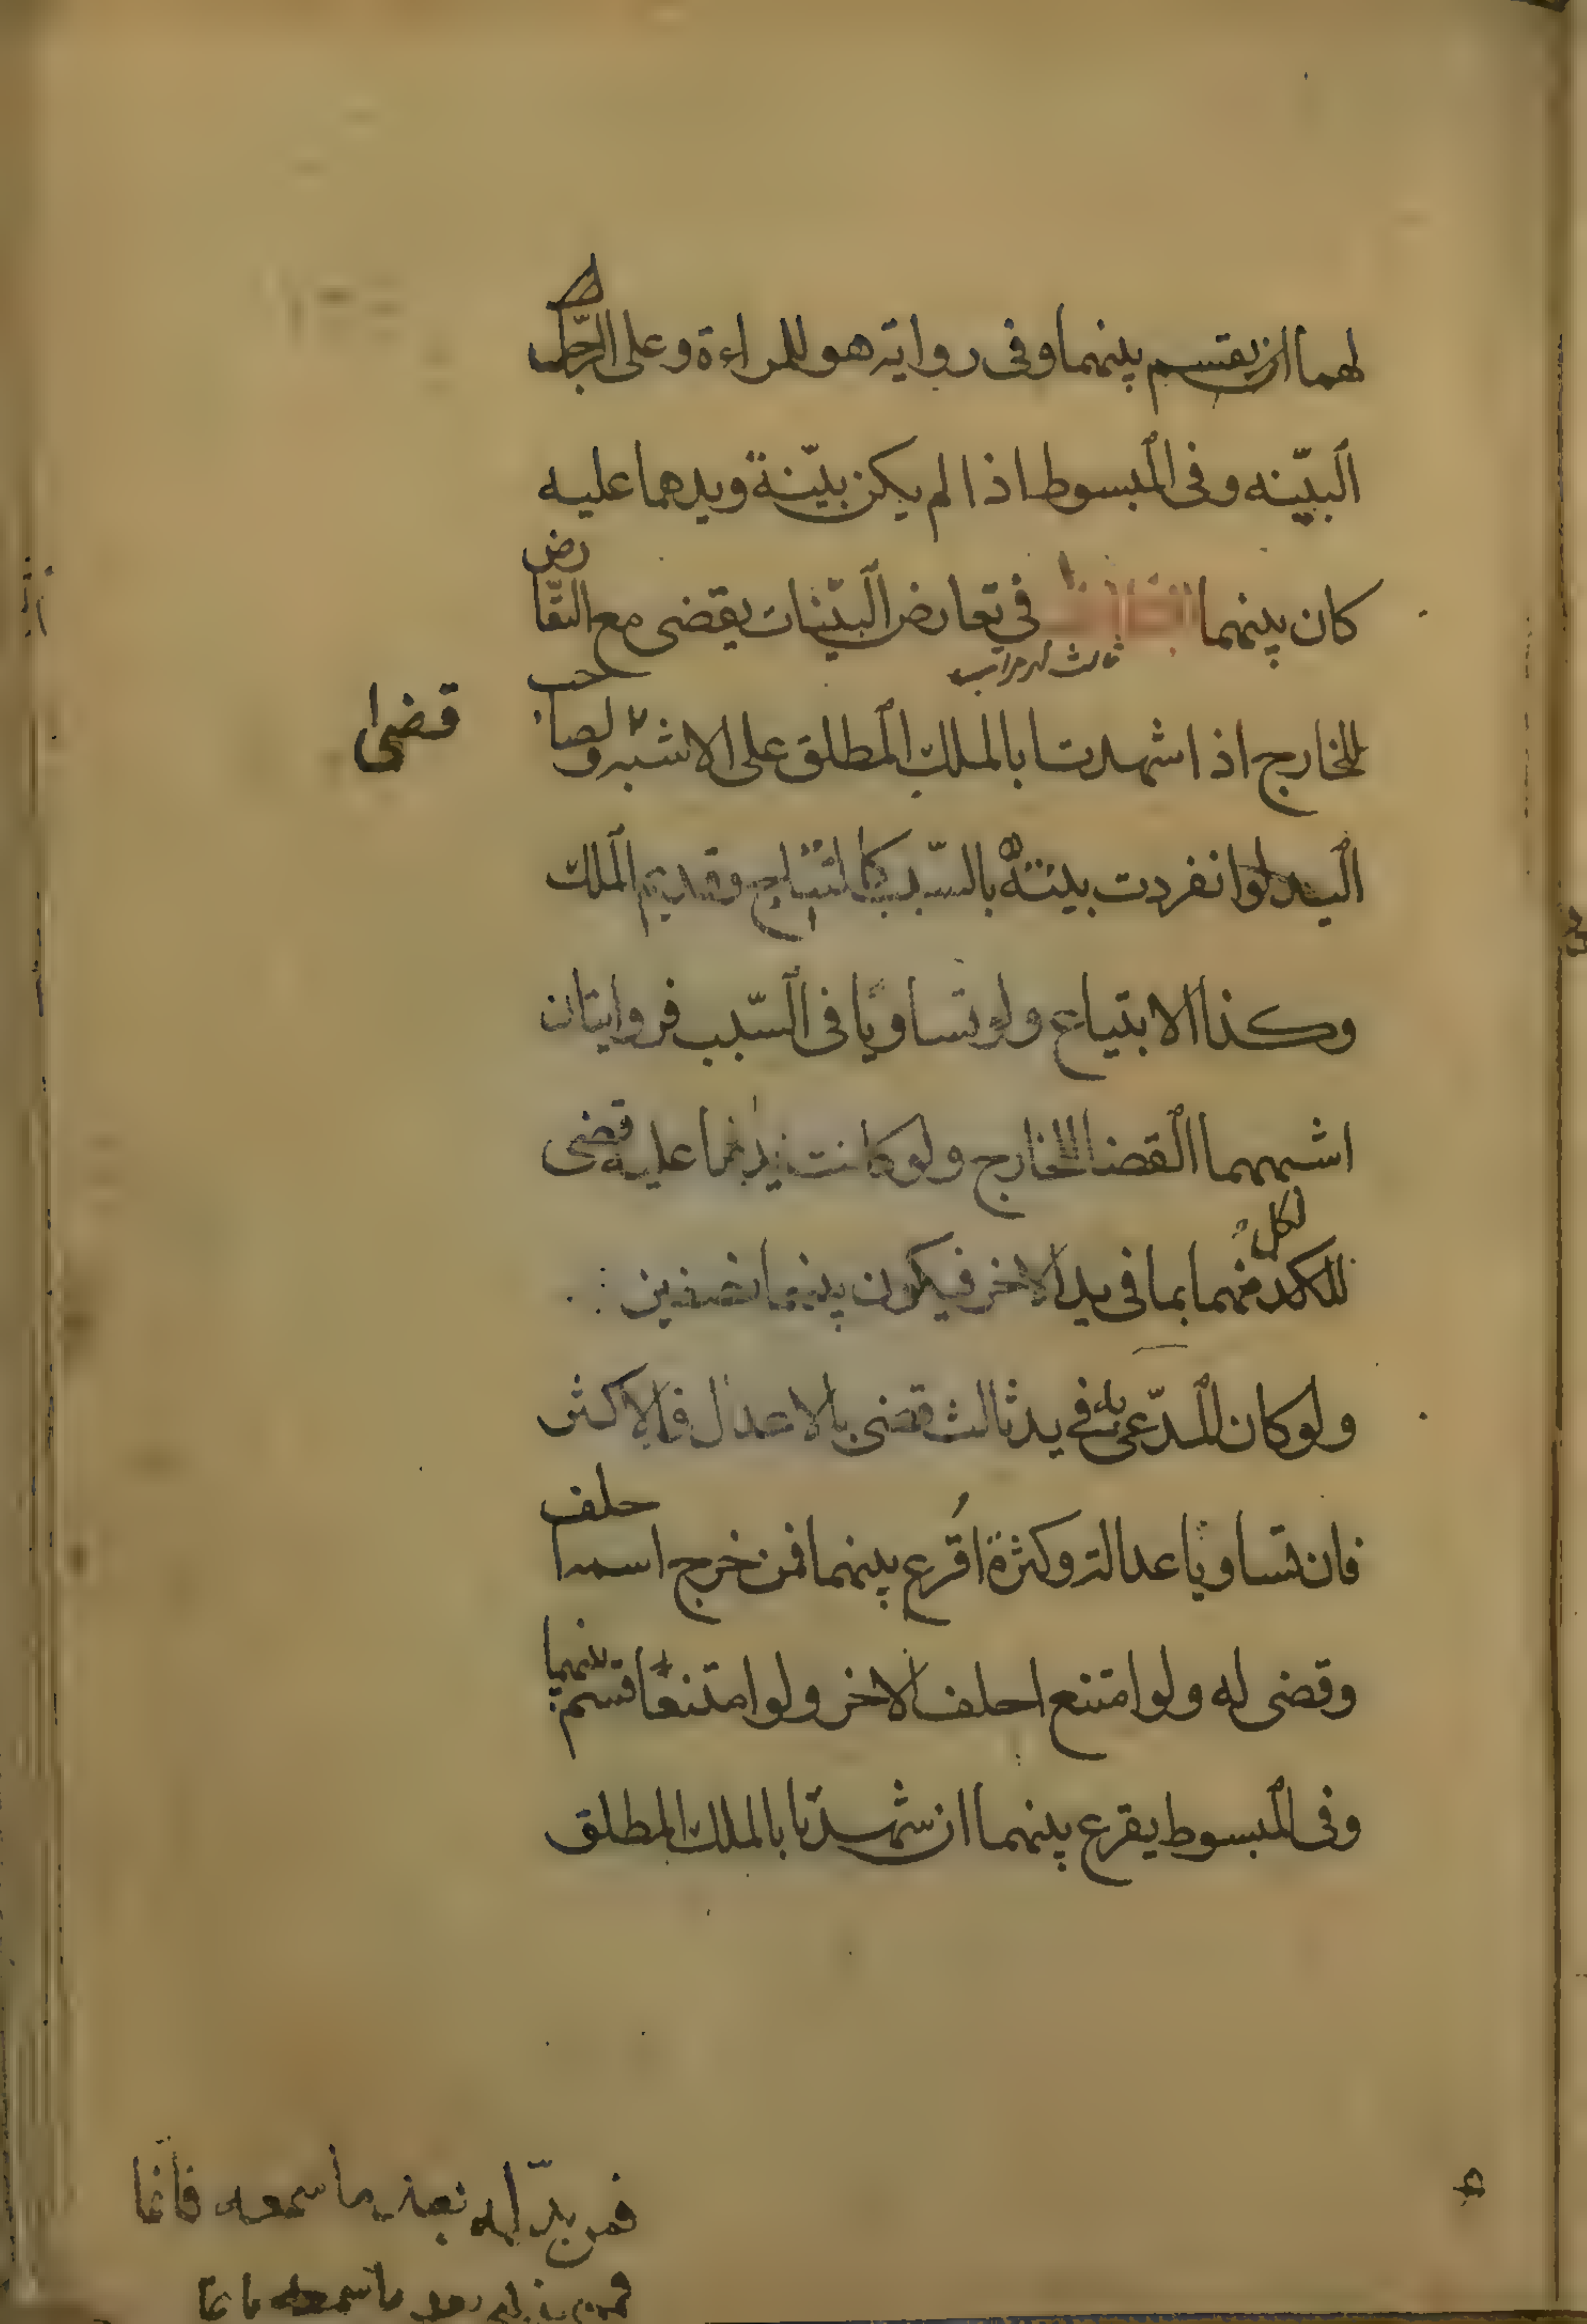 لهما ان يقسم بينهما وفى رواية هو للمراءة وعلى الرّجل
البيّنه وفى المبسوط اذا لم يكن بيّنة ويدهما عليه
كان بينهما فى تعارض البيّنات يقضى مع التّعارض
للخارج اذا شهدتا بالملك المطلق على الاشبه ولصاحب
اليد لو انفردت بينته بالسّبب كالنتاج وقديم الملك
وكذا الابتياع ولو تساويا فى السّبب فروايتان
اشبههما القضا للخارج ولو كانت يدهما عليه قضى
لكل منهما بما فى يد الاخر فيكون بينهما نصفين
ولو كان المدّعى به فى يد ثالث قضى بالاعدل فالاكثر
فان تساويا عدالة وكثرة اقرع بينهما فمن خرج اسمه احلف
وقضى له ولو امتنع احلف الاخر ولو امتنعا قسم بينهما
وفى المبسوط يقرع بينهما ان شهدتا بالملك المطلق
فمن بدّله بعد ما سمعه فانّما
فمن بدله بعد ما سمعه فانما